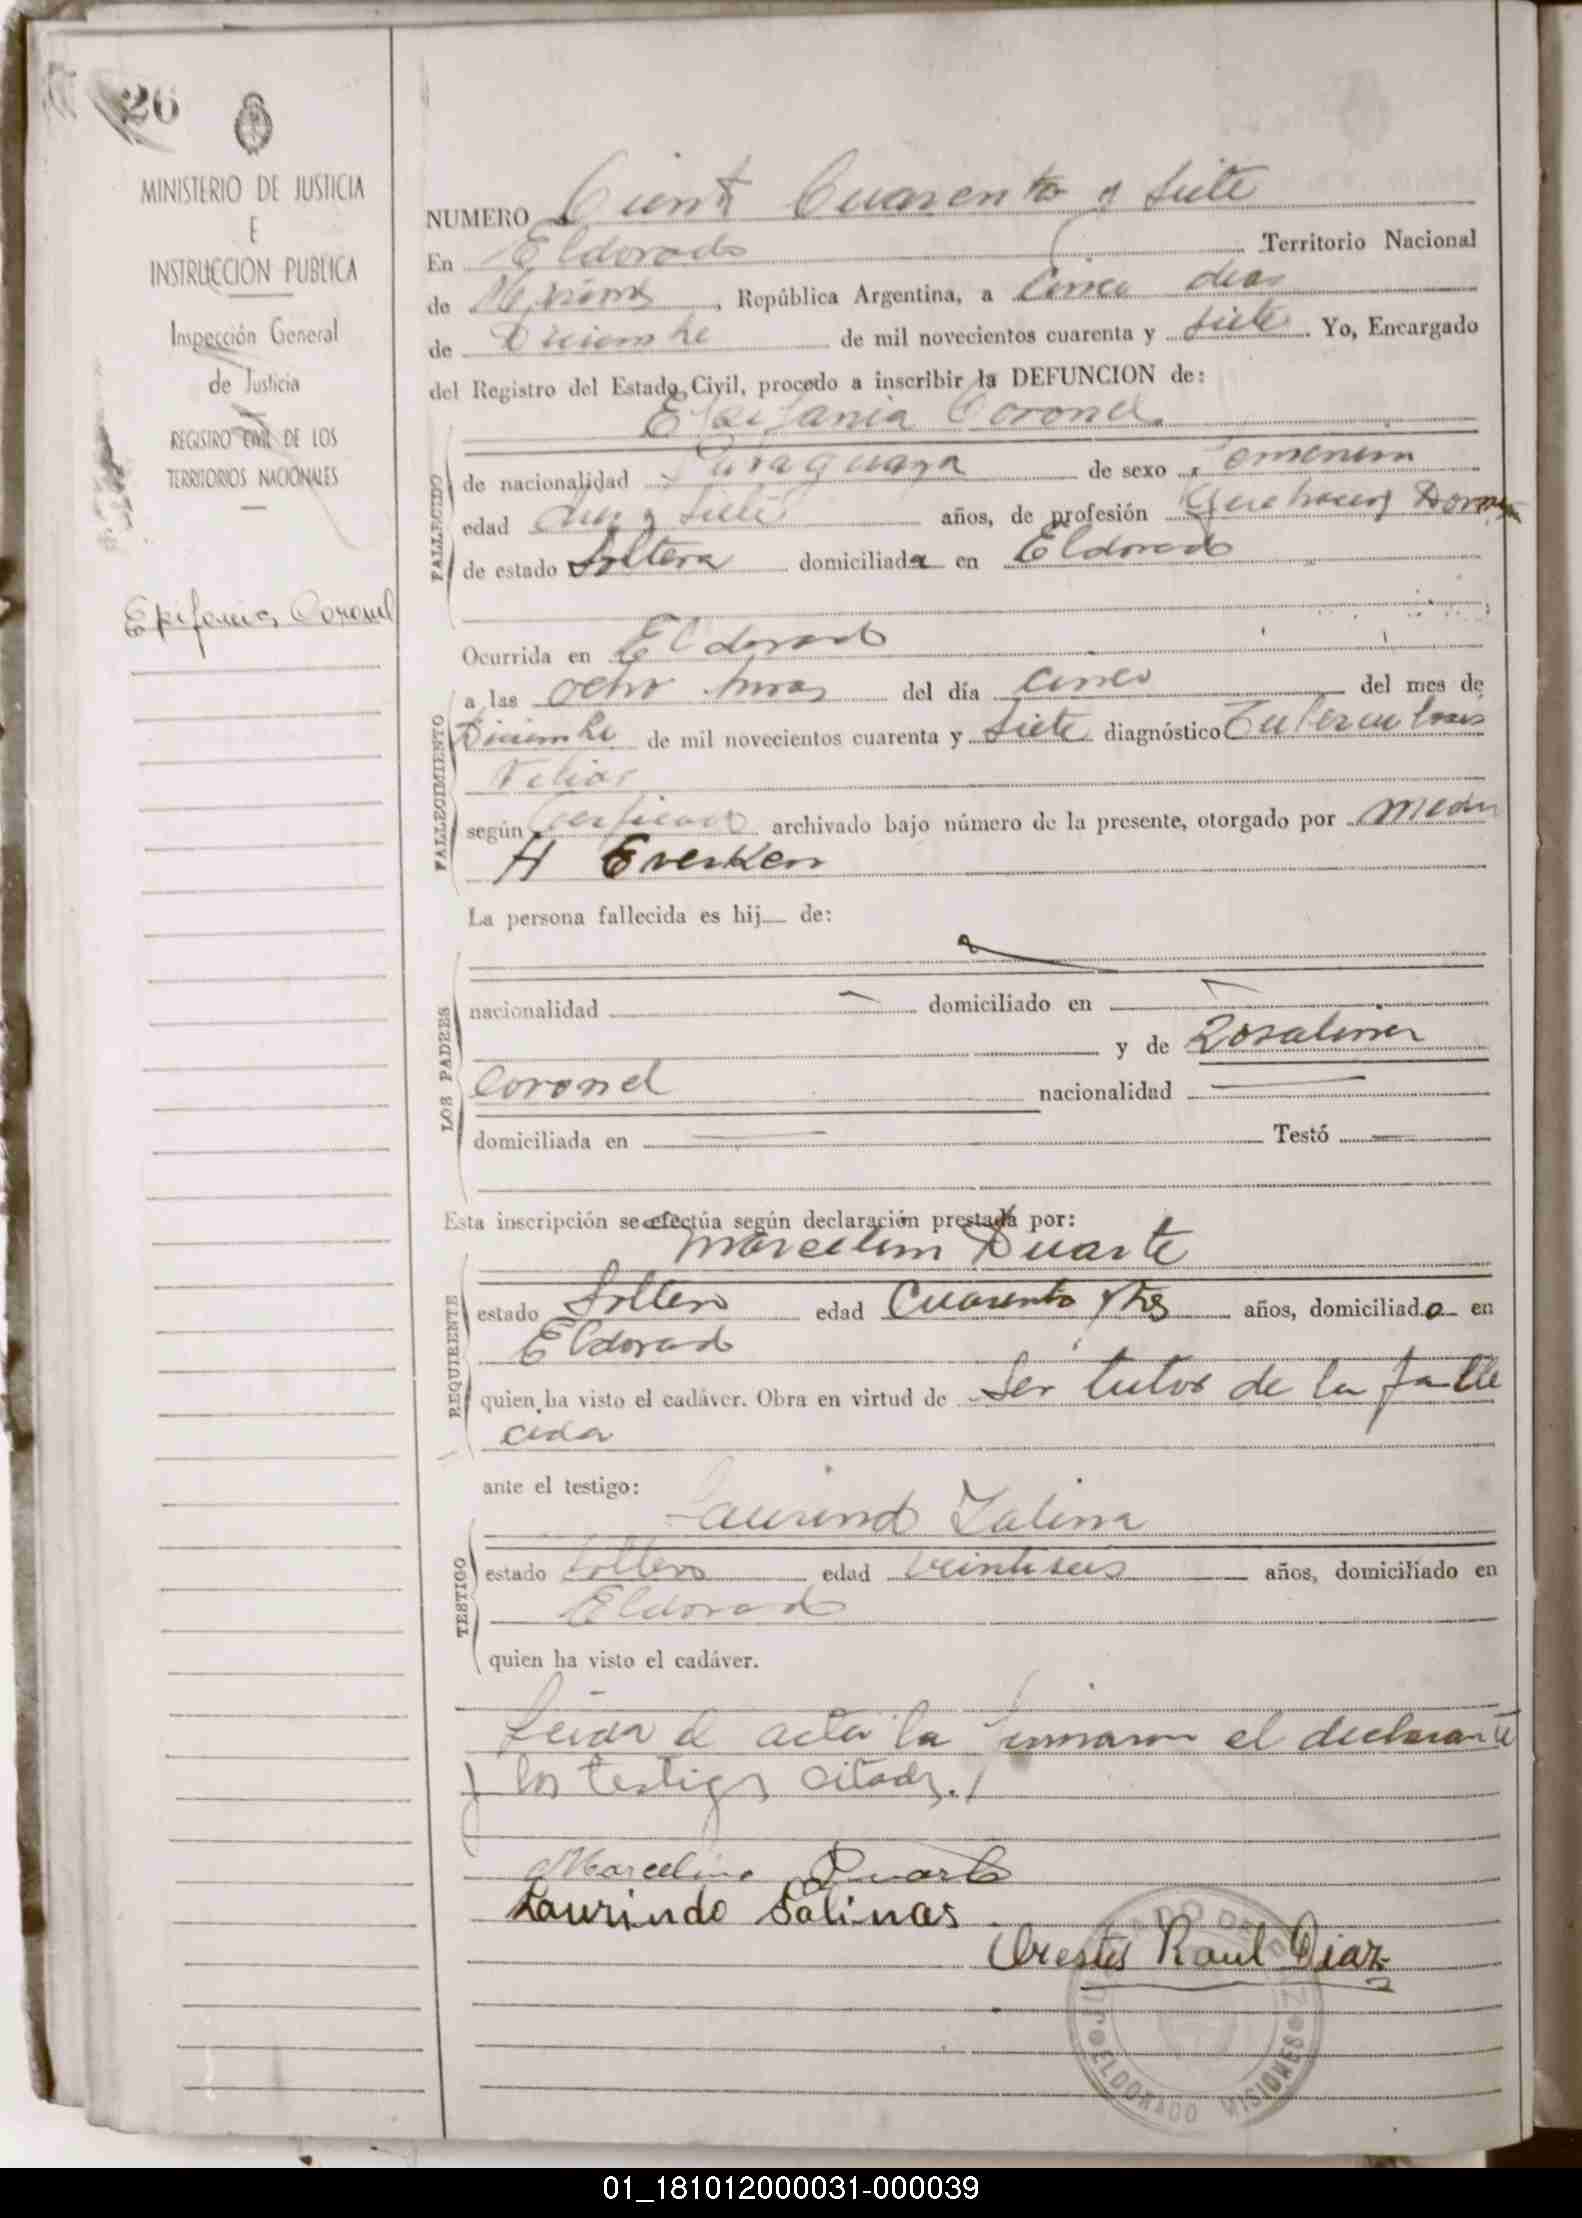 26
MINISTERIO DE JUSTICIA
E
INSTRUCCION PUBLICA
Inspección General
de Justicia
REGISTRO CIVIL DE LOS
TERRITORIOS NACIONALES
Epifania Coronel
NUMERO Cient Cuarenta y Siete
En Eldorado Territorio Nacional
de Misiones, República Argentina, a Cinco dias
de Diciembre de mil novecientos cuarenta y siete. Yo, Encargado
del Registro del Estado Civil, procedo a inscribir la DEFUNCION de:
Epifania Coronel
FALLECIDO
de nacionalidad Paraguaya de sexo Femenino
edad diez y siete años, de profesión Quehaceres Domes
de estado Soltera domiciliada en Eldorado
Ocurrida en Eldorado
FALLECIMIENTO
a las ocho horas del día cinco del mes de
Diciembre de mil novecientos cuarenta y Siete diagnóstico Tuberculosis
según Certificado archivado bajo número de la presente, otorgado por medico
H Everken
La persona fallecida es hij de:
LOS PADRES
nacionalidad domiciliado en
y de Rosalina
Coronel nacionalidad
domiciliada en Testó
Esta inscripción se efectúa según declaración prestada por:
Marcelino Duarte
REQUIRENTE
estado Soltero edad Cuarenta y tres años, domiciliado en
Eldorado
quien ha visto el cadáver. Obra en virtud de Ser tutor de la falle
cida
ante el testigo:
Laurindo Salina
TESTIGO
estado Soltero edad veintiseis años, domiciliado en
Eldorado
quien ha visto el cadáver.
Leida el acta la firmaron el declarante
y los testigos citados./
Marcelino Duarte
Laurindo Salinas
Orestes Raul Diaz
JUZGADO DE PAZ
ELDORADO MISIONES
01_181012000031-000039